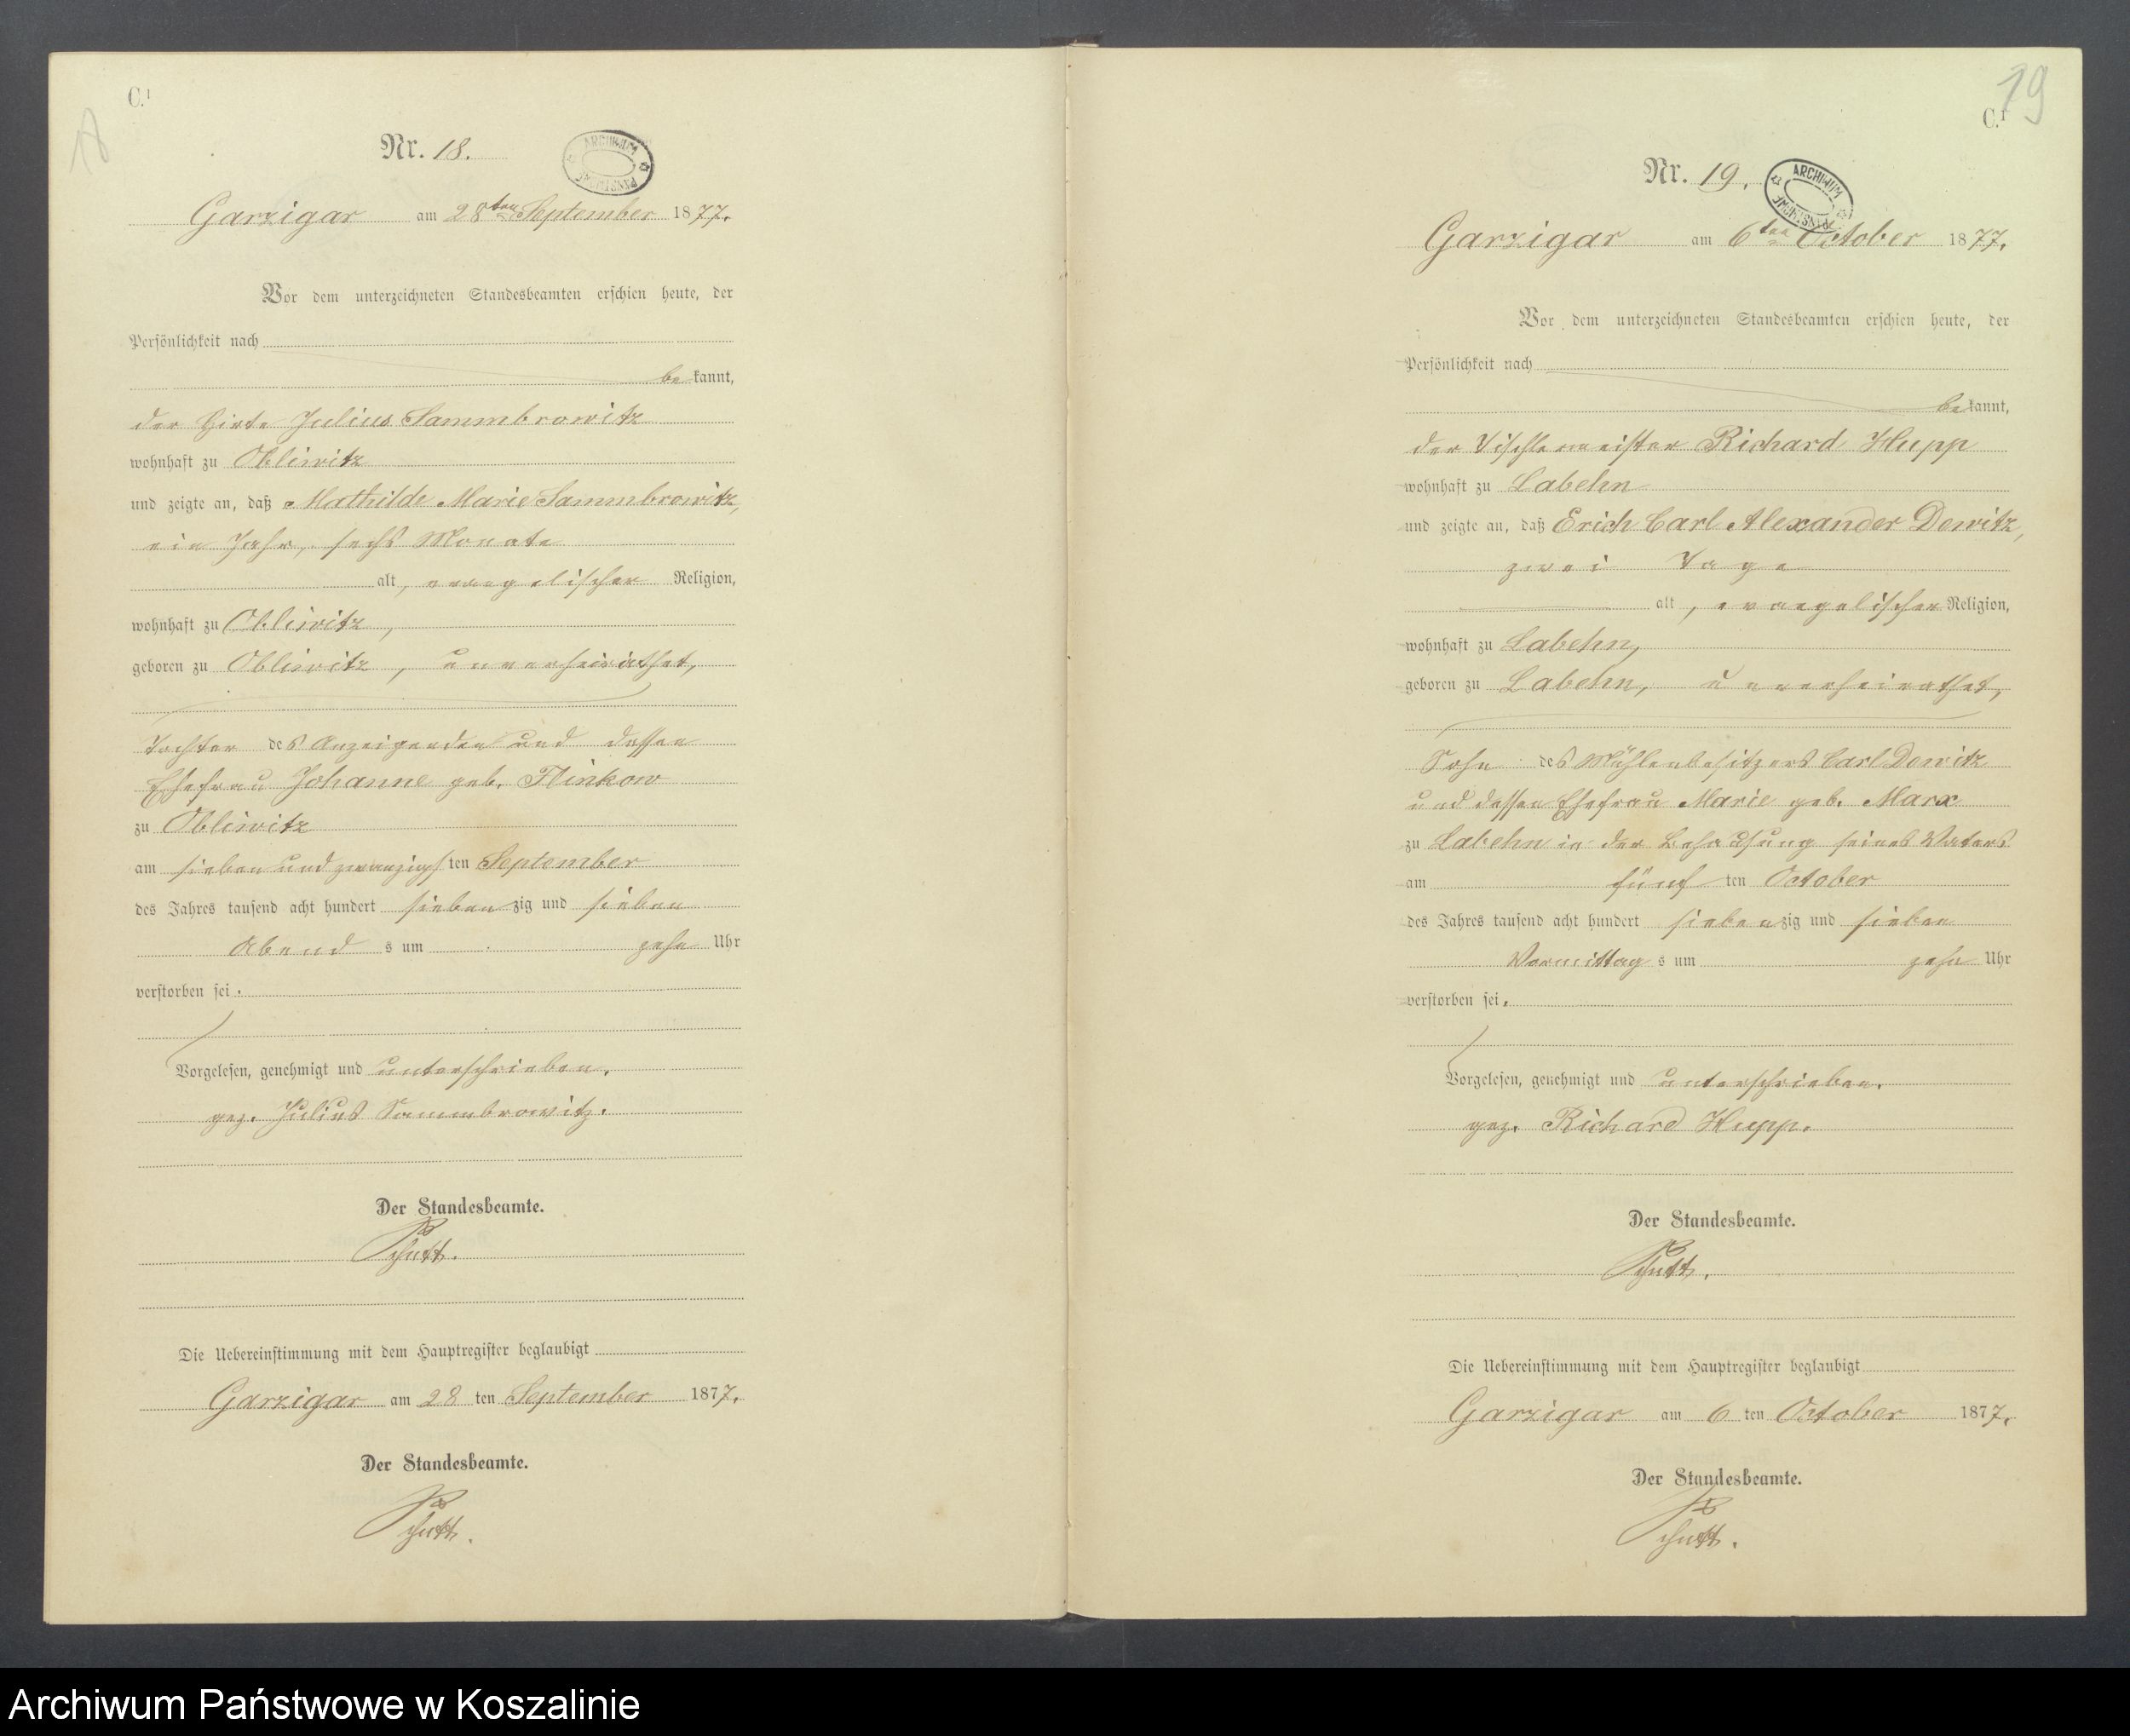 C.¹
18
Nr. 18.
ARCHIWUM PAŃSTWOWE
Garzigar am 28ten September 1877.
Vor dem unterzeichneten Standesbeamten erschien heute, der
Persönlichkeit nach
bekannt,
der Hirte Julius Sammbrowitz
wohnhaft zu Obliwitz
und zeigte an, daß Mathilde Marie Sammbrowitz,
ein Jahr, sechs Monate
alt, evangelischer Religion,
wohnhaft zu Obliwitz,
geboren zu Obliwitz, unverheirathet,
Tochter des Anzeigenden und dessen
Ehefrau Johanne geb. Flinkow
zu Obliwitz
am sieben und zwanzigsten September
des Jahres tausend acht hundert siebenzig und sieben
Abends um zehn Uhr
verstorben sei.
Vorgelesen, genehmigt und unterschrieben.
gez. Julius Sammbrowitz.
Der Standesbeamte.
Schutt.
Die Uebereinstimmung mit dem Hauptregister beglaubigt
Garzigar am 28ten September 1877.
Der Standesbeamte.
Schutt.
19
C.¹
Nr. 19.
ARCHIWUM PAŃSTWOWE
Garzigar am 6ten October 1877.
Vor dem unterzeichneten Standesbeamten erschien heute, der
Persönlichkeit nach
bekannt,
der Tischlermeister Richard Hupp
wohnhaft zu Labehn
und zeigte an, daß Erich Carl Alexander Dewitz,
zwei Tage
alt, evangelischer Religion,
wohnhaft zu Labehn,
geboren zu Labehn, unverheirathet,
Sohn des Mühlenbesitzers Carl Dewitz
und dessen Ehefrau Marie geb. Marx
zu Labehn in der Behausung seines Vaters
am fünften October
des Jahres tausend acht hundert siebenzig und sieben
Vormittags um zehn Uhr
verstorben sei.
Vorgelesen, genehmigt und unterschrieben.
gez. Richard Hupp.
Der Standesbeamte.
Schutt.
Die Uebereinstimmung mit dem Hauptregister beglaubigt
Garzigar am 6ten October 1877.
Der Standesbeamte.
Schutt.
Archiwum Państwowe w Koszalinie